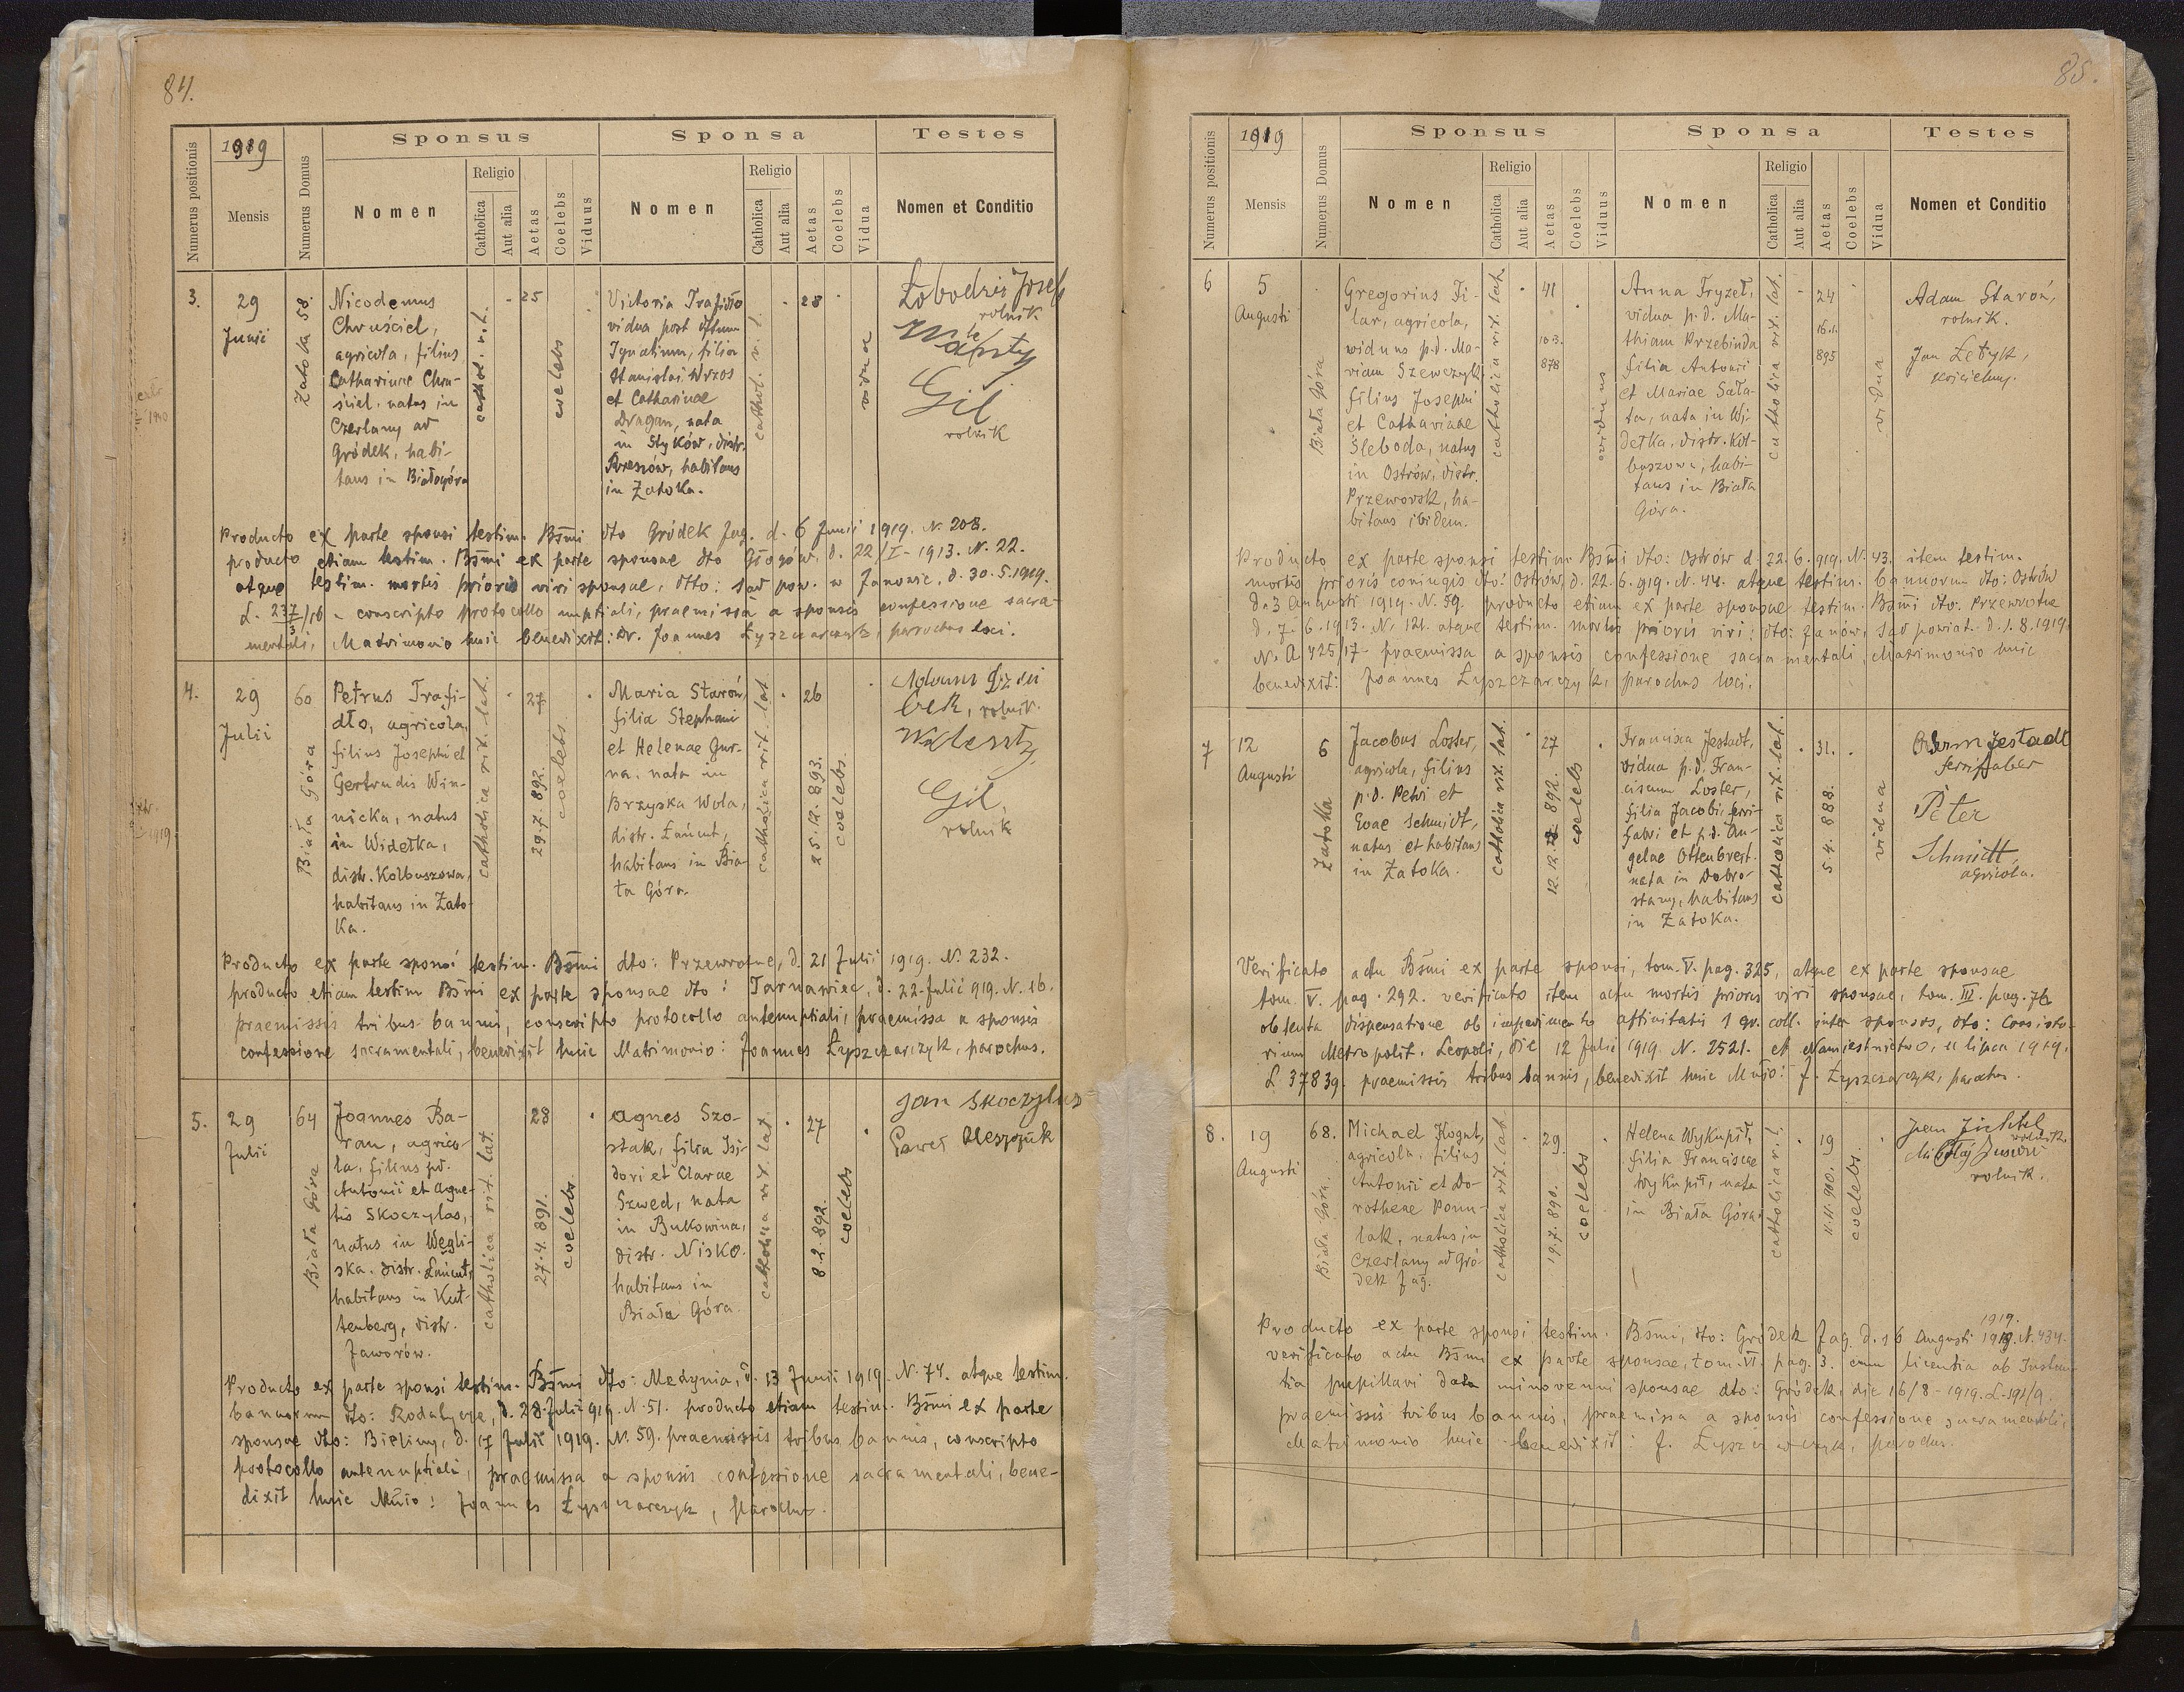 84.
Numerus positionis
1919
Mensis
Numerus Domus
Sponsus
Nomen
Religio
Catholica
Aut alia
Aetas
Coelebs
Viduus
Sponsa
Nomen
Religio
Catholica
Aut alia
Aetas
Coelebs
Vidua
Testes
Nomen et Conditio
3.
29
Junii
Zatoka 58.
Nicodemus
Chruściel,
agricola, filius
Catharinae Chru-
ściel, natus in
Czerlany ad
Gródek, habi-
tans in Białogóra
cathol. r. l.
25
coelebs
Victoria Trafidło
vidua post
Ignatium, filia
Stanislai Wrzos
et Catharinae
Dragan, nata
in Styków, distr.
Rzeszów, habitans
in Zatoka.
cathol. r. l.
28
vidua
rolnik
Gil
rolnik
Producto ex parte sponsi testim. Bsmi dto Gródek Jag. d. 6 Junii 1919. N. 208.
producto etiam testim. Bsmi ex parte sponsae dto Głogów, d. 22/I - 1913. N. 22.
atque testim. mortis prioris viri sponsae, dto: Sąd pow. w Janowie, d. 30.5.1919.
conscripto protocollo nuptiali, praemissa a sponsis confessione sacra-
mentali, Matrimonio huic benedixit: Dr. Joannes Łyszczarczyk, parochus loci.
4.
29
Julii
60
Biała Góra
Petrus Trafi-
dło, agricola,
filius Josephi et
Gertrudis Win-
nicka, natus
in Widełka,
distr. Kolbuszowa,
habitans in Zato-
ka.
catholica rit. lat.
27
29.7.892.
coelebs
Maria Staroń,
filia Stephani
et Helenae Gur-
na, nata in
Brzyska Wola,
distr. Łańcut,
habitans in Bia-
ła Góra.
catholica rit. lat
26
25.12.893.
coelebs.
rolnik.
Gil,
rolnik
Producto ex parte sponsi testim. Bsmi dto: Przewrotne, d. 21 Julii 1919. N. 232.
producto etiam testim Bsmi ex parte sponsae dto: Tarnawiec, d. 22-Julii 919. N. 16.
praemissis tribus bannis, conscripto protocollo antenuptiali, praemissa a sponsis
confessione sacramentali, benedixit huic Matrimonio: Joannes Łyszczarczyk, parochus.
5.
29
Julii
64
Biała Góra
Joannes Ba-
ran, agrico-
la, filius pd.
Antonii et Agne-
tis Skoczylas,
natus in Węgli-
ska. distr. Łańcut,
habitans in Kut-
tenberg, distr.
Jaworów.
catholica rit. lat.
28
27.4.891.
coelebs
Agnes Szo-
stak, filia Isi-
dori et Clarae
Szwed, nata
in Bukowina,
distr. Nisko.
habitans in
Biała Góra.
catholica rit. lat
27
8.2.892.
coelebs
Jan Skoczylas
Paweł Oleszczuk
Producto ex parte sponsi testim. Bsmi dto: Medynia, d. 13 Junii 1919. N. 74. atque testim.
bannorum dto: Rodatycze, d. 28 Julii 919. N. 51. producto etiam testim. Bsmi ex parte
sponsae dto: Bieliny, d. 17 Julii 1919. N. 59. praemissis tribus bannis, conscripto
protocollo antenuptiali, praemissa a sponsis confessione sacramentali, bene-
dixit huic Mnio: Joannes Łyszczarczyk, parochus.
85.
Numerus positionis
1919
Mensis
Numerus Domus
Sponsus
Nomen
Religio
Catholica
Aut alia
Aetas
Coelebs
Viduus
Sponsa
Nomen
Religio
Catholica
Aut alia
Aetas
Coelebs
Vidua
Testes
Nomen et Conditio
6
5
Augusti
Biała Góra
Gregorius Fi-
lar, agricola,
viduus p.d. Ma-
riam Szewczyk
filius Josephi
et Catharinae
Śleboda, natus
in Ostrów, distr.
Przeworsk, ha-
bitans ibidem.
catholica rit. lat.
41
10 3.
878
viduus
Anna Fryzeł,
vidua p. d. Ma-
thiam Przebinda
filia Antonii
et Mariae Sała-
ta, nata in Wi-
dełka, distr. Kol-
buszowa, habi-
tans in Biała
Góra.
catholica rit. lat.
24
16.1.
895
vidua
Adam Staroń,
rolnik.
Jan Letyk,
kościelny.
Producto ex parte sponsi testim. Bsmi dto: Ostrów d. 22.6.919. N. 43. item testim.
mortis prioris coniugis dto: Ostrów, d. 22.6.919. N. 44. atque testim. bannorum dto: Ostrów
d. 3 Augusti 1919. N. 59. producto etiam ex parte sponsae testim. Bsmi dto: Przewrotne
d. 7.6.1913. N. 121. atque testim. mortis prioris viri: dto: Janów, Sąd powiat. d. 1.8.1919
N. A 425/17 - praemissa a sponsis confessione sacramentali, Matrimonio huic
benedixit: Joannes Łyszczarczyk, parochus loci.
7
12
Augusti
6
Zatoka
Jacobus Loster,
agricola, filius
p.d. Petri et
Evae Schmidt,
natus et habitans
in Zatoka.
catholica rit. lat.
27
12.12. 892.
coelebs
Francisca Jestadt,
vidua p.d. Fran-
ciscum Loster,
filia Jacobi, ferri-
fabri et p.d. An-
gelae Ottenbreit.
nata in Dobro-
stany, habitans
in Zatoka.
catholica rit. lat.
31.
5.4. 888.
vidua
Jestadt
ferrifaber
Peter
Schmidt,
agricola.
Verificato actu Bsmi ex parte sponsi, tom. V. pag. 325, atque ex parte sponsae
tom. V. pag. 292. verificato item actu mortis prioris viri sponsae, tom. III. pag. 76
obtenta dispensatione ob impedimento affinitatis 1 gr. coll. inter sponsos, dto: Consisto-
rium Metropolit. Leopoli, die 12 Julii 1919. N. 2521. et Namiestnictwo, 11 lipca 1919.
L 37839. praemissis tribus bannis, benedixit huic Mnio: J. Łyszczarczyk, parochus.
8.
19
Augusti
68.
Biała Góra.
Michael Kogut,
agricola, filius
Antonii et Do-
rotheae Pomu-
lak, natus in
Czerlany ad Gró-
dek Jag.
catholica rit. lat
29.
19.7.890.
coelebs
Helena Wykupił,
filia Franciscae
Wykupił, nata
in Biała Góra.
catholica r. l.
19
11.11.900.
coelebs
rolnik.
rolnik.
Producto ex parte sponsi testim. Bsmi, dto: Gródek Jag. d. 16 Augusti 1919. N. 434.
verificato actu Bsmi ex parte sponsae, tom. VI. pag. 3. cum licentia ab Instan-
tia pupillari data minorenni sponsae dto: Gródek, die 16/8 - 1919.
praemissis tribus bannis, praemissa a sponsis confessione sacramentali,
Matrimonio huic benedixit: J. Łyszczarczyk, parochus.